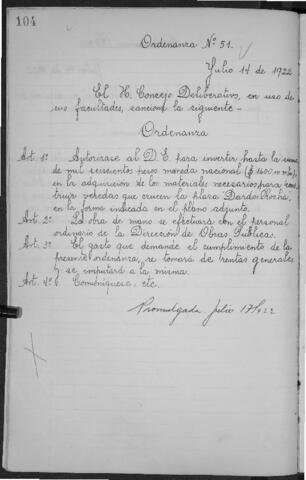 104
Ordenanza Nº 51.
Julio 14 de 1922
El H. Concejo Deliberativo, en uso de
sus facultades, sanciona la siguiente -
Ordenanza
Art. 1º Autorízase al D. E. para invertir hasta la suma
de mil seiscientos pesos moneda nacional ($ 1600.00 m/n)
en la adquisición de los materiales necesarios, para cons
truir veredas que crucen la plaza Dardo Rocha,
en la forma indicada en el plano adjunto.
Art. 2º La obra de mano se efectuará con el personal
ordinario de la Dirección de Obras Públicas.
Art. 3º El gasto que demande el cumplimiento de la
presente ordenanza, se tomará de rentas generales
y se imputará a la misma.
Art. 4º Comuníquese, etc.
Promulgada Julio 17/922